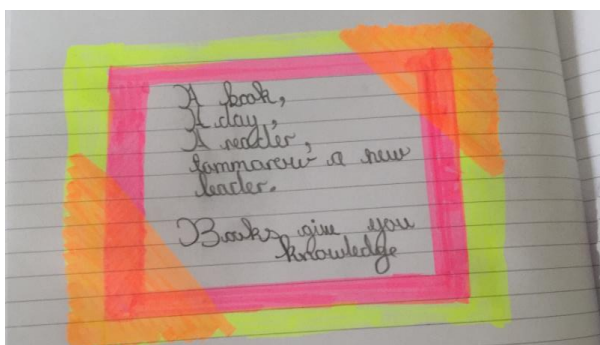 A book,
A day,
A reader,
tommorew a new
leader.
Books give you
knowledge